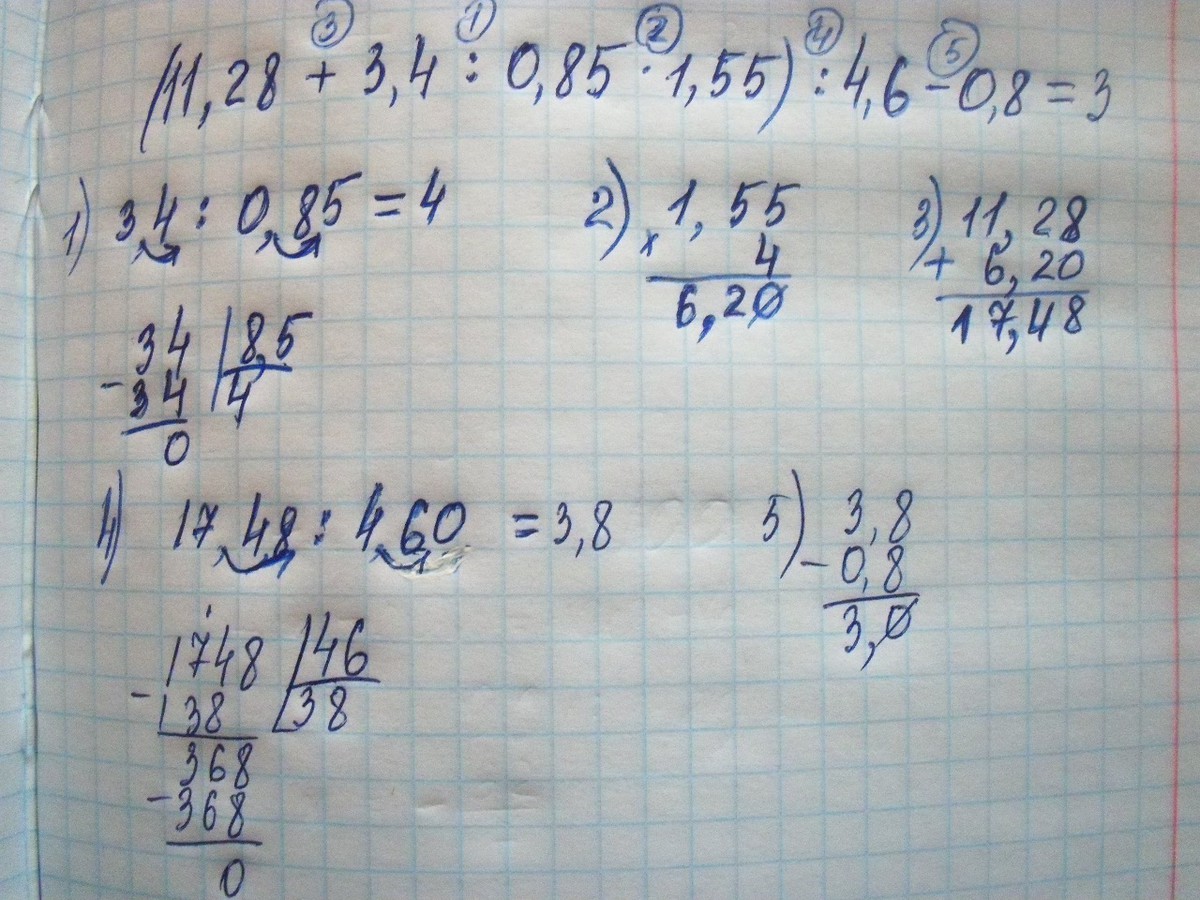 ③ ① ② ④ ⑤
(11,28 + 3,4 : 0,85 · 1,55) : 4,6 - 0,8 = 3
1) 3,4 : 0,85 = 4
34 | 8,5
- 34 | 4
0
2) 1,55
× 4
6,20
3) 11,28
+ 6,20
17,48
4) 17,48 : 4,60 = 3,8
1748 | 46
- 138 | 38
368
- 368
0
5) 3,8
- 0,8
3,0